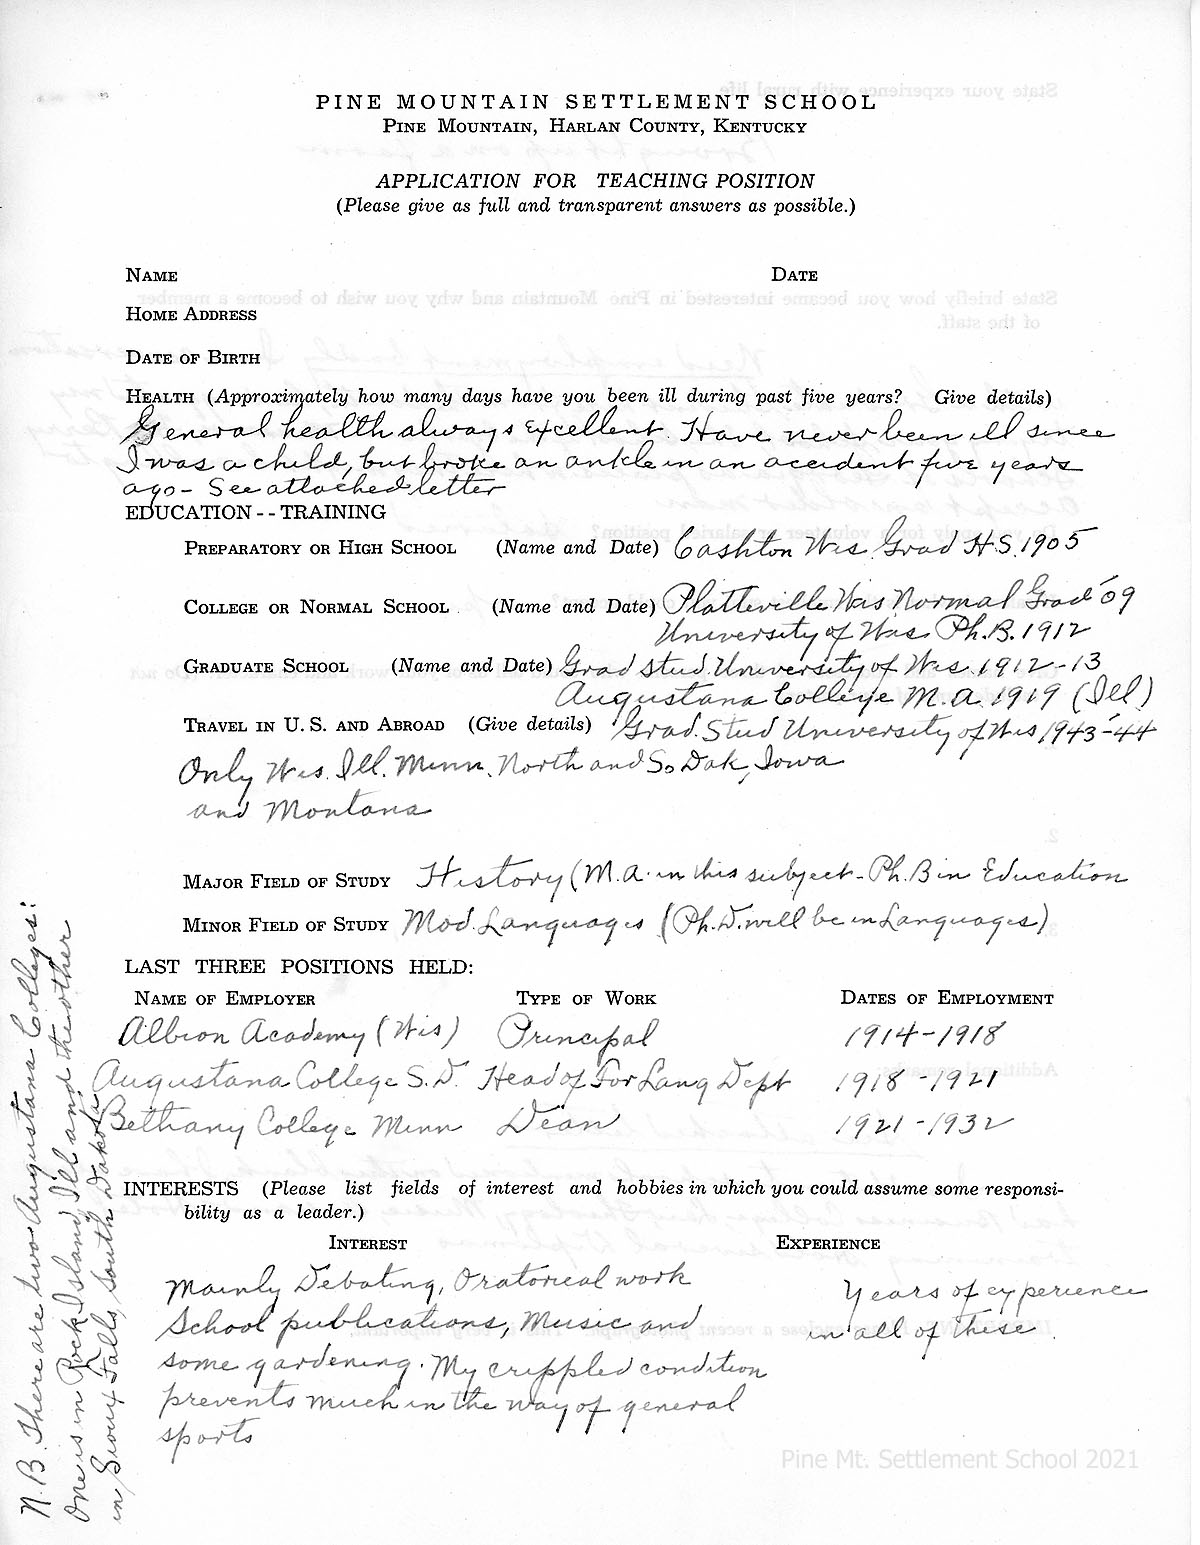 PINE MOUNTAIN SETTLEMENT SCHOOL
PINE MOUNTAIN, HARLAN COUNTY, KENTUCKY
APPLICATION FOR TEACHING POSITION
(Please give as full and transparent answers as possible.)
NAME DATE
HOME ADDRESS
DATE OF BIRTH
HEALTH (Approximately how many days have you been ill during past five years? Give details)
General health always excellent. Have never been ill since
I was a child, but broke an ankle in an accident five years
ago - See attached letter
EDUCATION -- TRAINING
PREPARATORY OR HIGH SCHOOL (Name and Date) Cashton Wis. Grad H.S. 1905
COLLEGE OR NORMAL SCHOOL (Name and Date) Platteville Wis Normal Grad '09
University of Wis. Ph.B. 1912
GRADUATE SCHOOL (Name and Date) Grad stud. University of Wis. 1912-13
Augustana College M.A. 1919 (Ill)
TRAVEL IN U. S. AND ABROAD (Give details) Grad. Stud University of Wis 1943-'44
Only Wis. Ill. Minn. North and So Dak, Iowa
and Montana
MAJOR FIELD OF STUDY History (M.A. in this subject - Ph.B in Education
MINOR FIELD OF STUDY Mod. Languages (Ph.D. will be in Languages)
LAST THREE POSITIONS HELD:
NAME OF EMPLOYER TYPE OF WORK DATES OF EMPLOYMENT
Albion Academy (Wis) Principal 1914-1918
Augustana College S.D. Head of For Lang Dept 1918-1921
Bethany College Minn Dean 1921-1932
INTERESTS (Please list fields of interest and hobbies in which you could assume some responsi-
bility as a leader.)
INTEREST EXPERIENCE
Mainly Debating, Oratorical work
School publications, Music and
some gardening. My crippled condition
prevents much in the way of general
sports
Years of experience
in all of these.
N.B. There are two Augustana Colleges:
One is in Rock Island, Ill and the other
in Sioux Falls, South Dakota
Pine Mt. Settlement School 2021